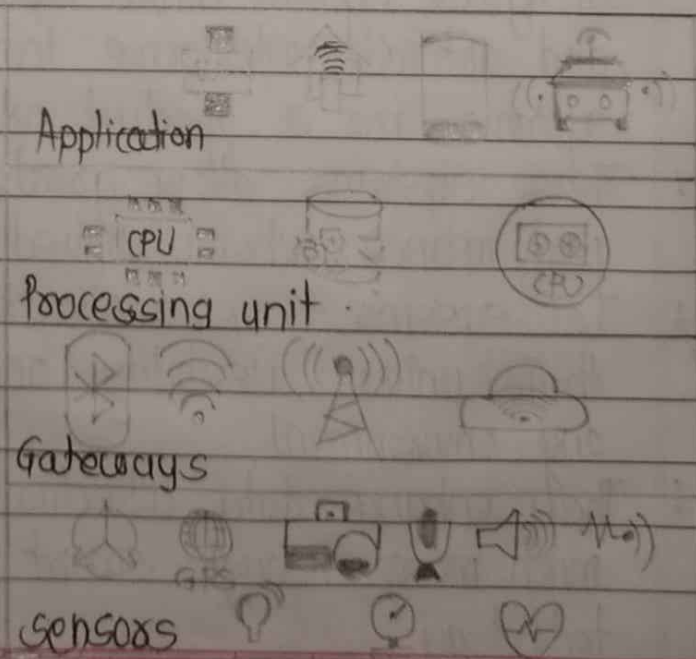 Application
CPU
CPU
Processing unit
Gateways
GPS
sensors